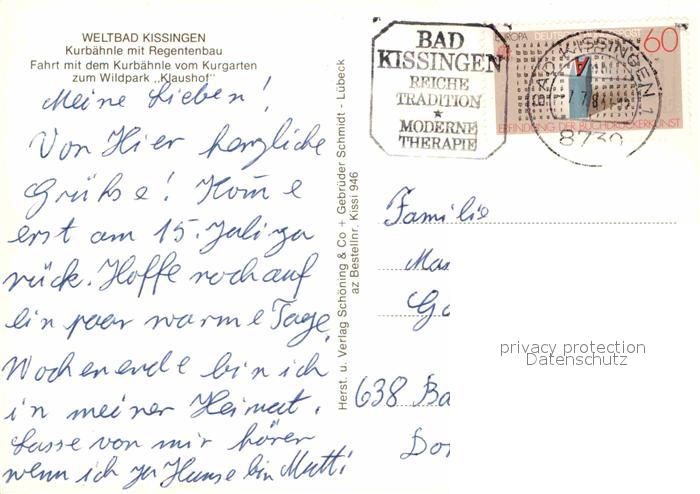 WELTBAD KISSINGEN
Kurbähnle mit Regentenbau
Fahrt mit dem Kurbähnle vom Kurgarten
zum Wildpark „Klaushof"
Meine Lieben!
Von Hier herzliche
Grüße! Kom̅e
erst am 15. Juli zu
rück. Hoffe noch auf
ein paar warme Tage,
Wochenende bin ich
in meiner Heimat.
Lasse von mir hören
wenn ich zu Hause bin Mutti
Herst. u. Verlag Schöning & Co + Gebrüder Schmidt - Lübeck
az Bestellnr. Kissi 946
BAD
KISSINGEN
REICHE
TRADITION
★
MODERNE
THERAPIE
EUROPA DEUTSCHE BUNDESPOST 60
ERFINDUNG DER BUCHDRUCKERKUNST
BAD KISSINGEN 1
8730
Familie
638 Ba
privacy protection
Datenschutz